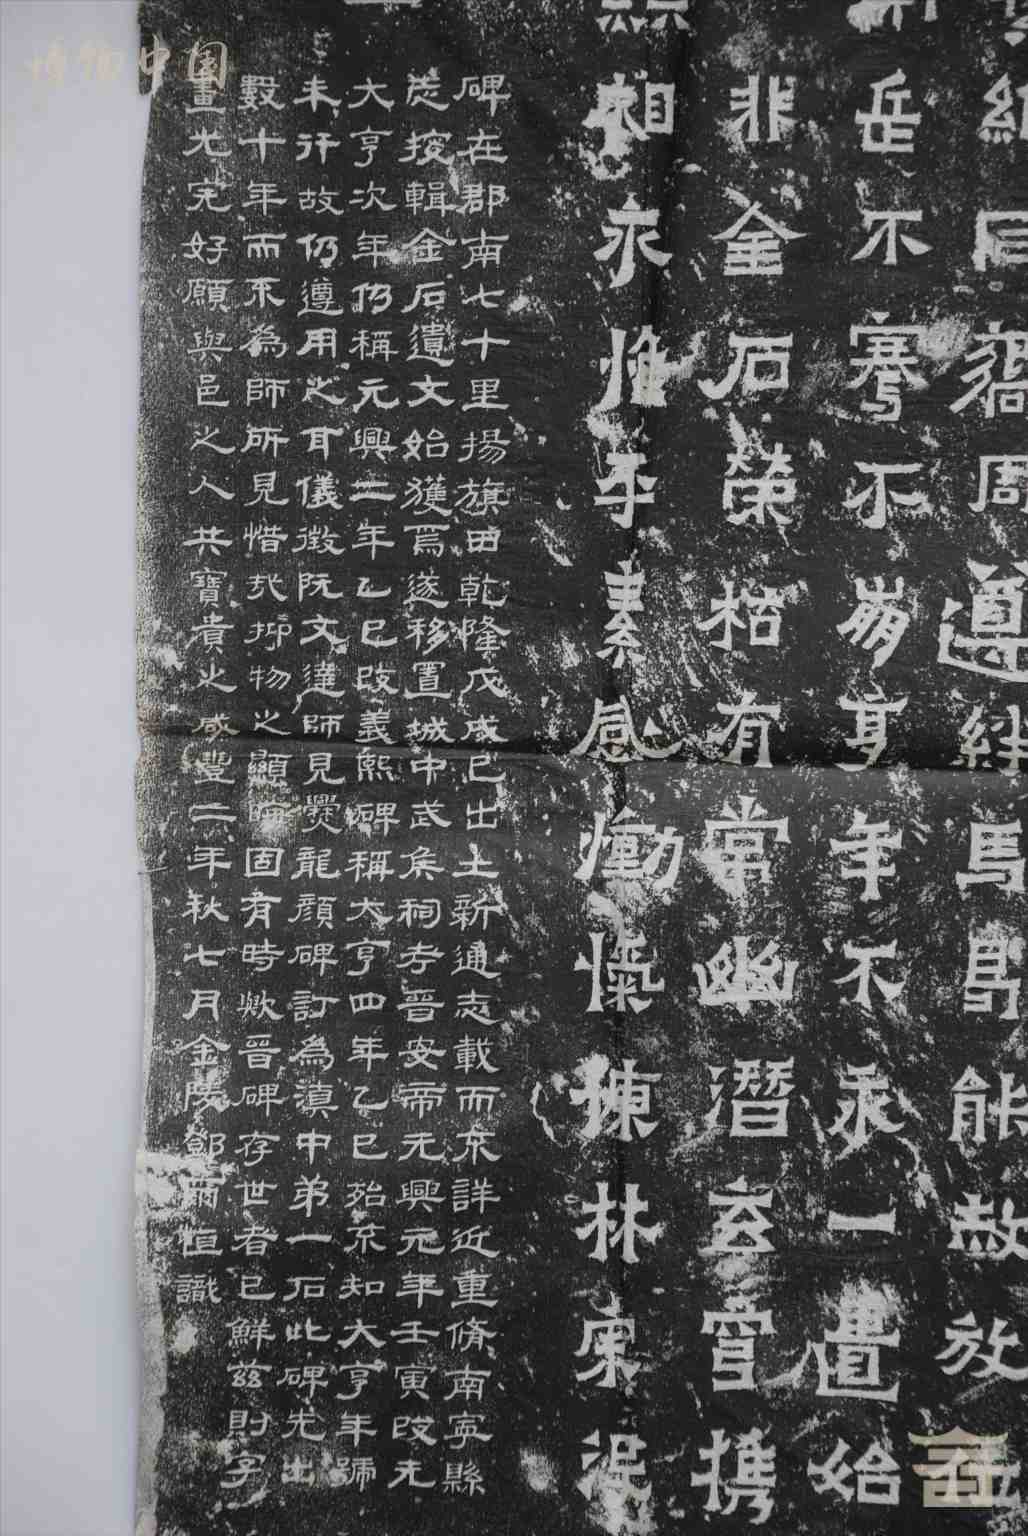 維同響周遵絆馬曷能赦放位
岳不騫不崩享年不永一匱始
非金石榮枯有常幽潛玄穹攜
相永惟平素感慟愾慷林宗沒
碑在郡南七十里揚旗田乾隆戊戌已出土新通志載而不詳近重脩南寧縣
志搜輯金石遺文始獲焉遂移置城中武侯祠考晉安帝元興元年壬寅改元
大亨次年仍稱元興二年乙巳改義熙碑稱大亨四年乙巳殆不知大亨年號
未行故仍遵用之耳儀徵阮文達師見爨龍顏碑訂為滇中弟一石此碑先出
數十年而不為師所見惜哉抑物之顯晦固有時歟晉碑存世者已鮮茲則字
畫尤完好願與邑之人共寶貴之咸豐二年秋七月金陵鄧爾恒識
博物中国